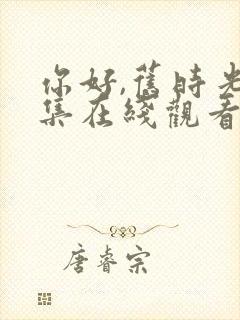 你好,舊時光
集在綫觀看
唐睿宗